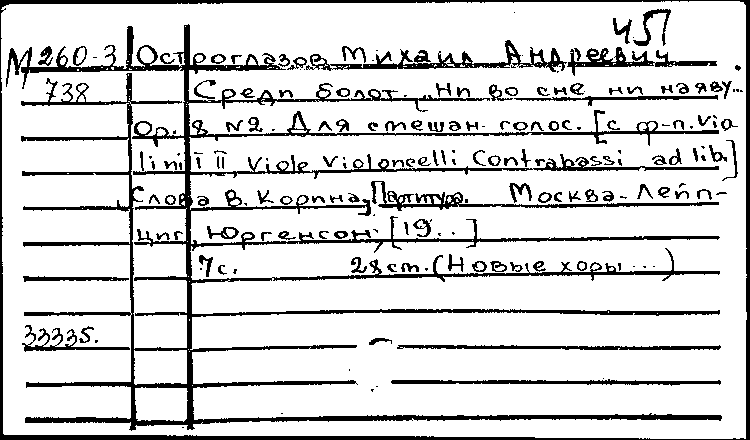 451
М260-3 Остроглазов Михаил Андреевич.
738 Среди болот. „Ни во сне, ни наяву..
Ор. 8, №2. Для смешан. голос. [с ф-п. Vio
lini I II, Viole, Violoncelli, Contrabassi ad lib.]
Слова В. Корина, Партитура. Москва-Лейп-
циг, Юргенсон, [19..]
7с. 28 ст. (Новые хоры ...)
33335.